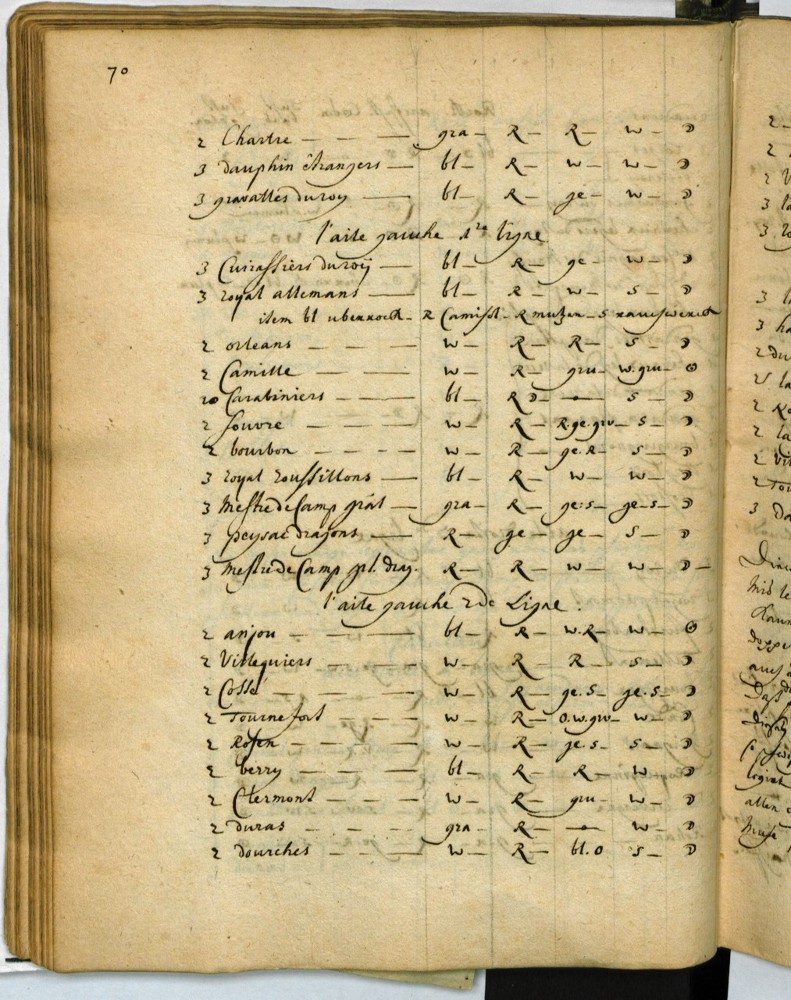 70
2 Chartre — — — gra — R — R — w — D
3 dauphin êtrangers — bl — R — w — w — D
3 gravattes du roy — bl — R — ge — w — D
l'aile gauche 1re ligne
3 Cuirassiers du roij — bl — R — ge — w — D
3 royal allemans — bl — R — w — s — D
item bl R Camisol — R mutzen — s
2 orleans — — — w — R — R — s — D
2 Camille — — — w — R — gru — w. gru — O
20 Carabiniers — — bl — R D — — s — D
2 souvre — — — w — R — R. ge. gru — s — D
2 bourbon — — — w — R — ge. R — s — D
3 royal roussillons — bl — R — w — w — D
3 Mestre de Camp grãl — gra — R — ge: s — ge — s — D
3 peysac dragons — R — ge — ge — s — D
3 Mestre de Camp grl. drag. R — R — w — w — D —
l'aile gauche 2de Ligne .
2 anjou — — — bl — R — w. R — w — O
2 Villequiers — — w — R — R — s — D
2 Cossé — — — w — R — ge. s — ge. s — D
2 Tournefort — — w — R — o. w. gru — w — D
2 Rosen — — — w — R — ge. s — s — D
2 berry — — — bl — R — R — w — D
2 Clermont — — — w — R — gru — w — D
2 duras — — — gra — R — — w — D
2 dourches — — — w — R — bl. o s — D